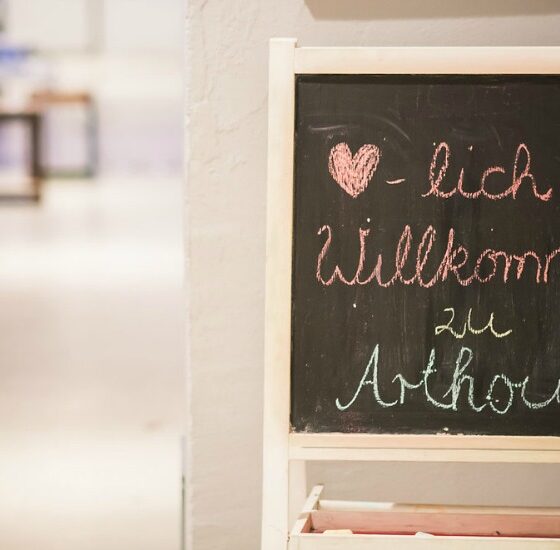 ♥-lich
Willkomm
zu
Arthou